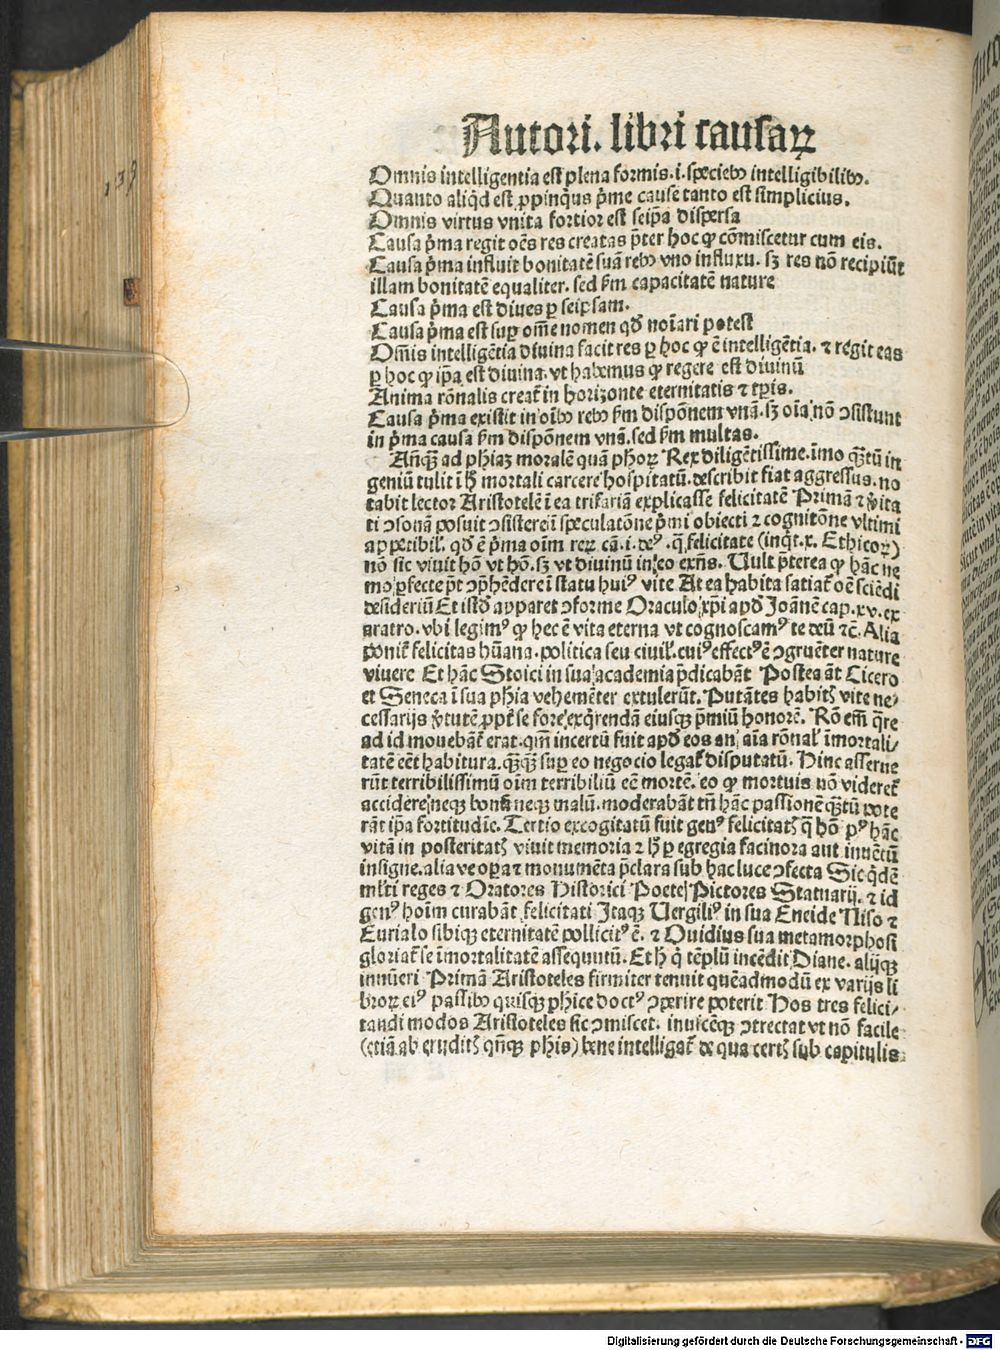 133
Autori. libri causaꝝ
Omnis intelligentia est plena formis.i.speciebꝰ intelligibilibꝰ.
Quanto aliq̇d est ꝓpinq̇us p̄me cause tanto est simplicius.
Omnis virtus vnita fortior est seip̄a dispersa
Causa p̄ma regit oēs res creatas p̄ter hoc ꝙ cōmiscetur cum eis.
Causa p̄ma influit bonitatē suā rebꝰ vno influxu. sꝫ res nō recipiūt
illam bonitatē equaliter. sed ẜm capacitatē nature
Causa p̄ma est diues ꝑ seipsam.
Causa p̄ma est suꝑ om̄e nomen qd̄ noīari potest
Om̄is intelligētia diuina facit res ꝑ hoc ꝙ ē intelligētia. ⁊ regit eas
ꝑ hoc ꝙ ip̄a est diuina. vt habemus ꝙ regere est diuinū
Anima rōnalis creat̄ in horizonte eternitatis ⁊ tꝑis.
Causa p̄ma existit in oībꝰ rebꝰ ẜm dispōnem vnā. sꝫ oīa nō ↄsistunt
in p̄ma causa ẜm dispōnem vnā. sed ẜm multas.
Anꝗ̄ꝫ ad phiaꝫ moralē quā phoꝝ Rex diligētissime. īmo qꝫ̄tū in
geniū tulit ī hꝰ mortali carcere hospitatū. describit fiat aggressus. no
tabit lector Aristotelē ī ea trifariā explicasse felicitatē Primā ⁊ v̄ita
ti ↄsonā posuit ↄsistere in speculatōne p̄mi obiecti ⁊ cognitōne vltimi
appetibil̓. qd̄ ē p̄ma oīm reꝝ cā.i.deꝰ. q̄ felicitate (inq̇t.x. Ethicoꝝ)
nō sic viuit hō vt hō. sꝫ vt divinū in eo exn̄s. Vult p̄terea ꝙ hāc ne
mo ꝑfecte p̄t ↄp̄hēdere ī statu huiꝰ vite At ea habita satiat̄ oē sciēdi
desideriū Et istd̄ apparet ↄforme Oraculo xp̄i apd̄ Joānē cap.xv. ex
aratro. vbi legimꝰ ꝙ hec ē vita eterna vt cognoscamꝰ te deū ⁊c̄. Alia
ponit̄ felicitas hūana. politica seu ciuil̓. cuiꝰ effectꝰ ē ↄgruēter nature
viuere Et hāc Stoici in sua academia p̄dicabāt Postea āt Cicero
et Seneca ī sua phia vehemēter extulerūt. Putātes habitꝭ vite ne⸗
cessarijs v̇tutē ꝓpt̄ se fore exq̇rendā eiusqꝫ p̄miū honorē. Rō em̄ q̄re
ad id mouebāt̄ erat. qm̄ incertū fuit apd̄ eos an aīa rōnal̓ īmortali⸗
tatē eēt habitura. qꝫ̄qꝫ̄ suꝑ eo negocio legat̄ disputatū. Hinc asserue
rūt terribilissimū oīm terribiliū eē mortē. eo ꝙ mortuis nō videret̄
accidere neqꝫ bonū neqꝫ malū. moderabāt tn̄ hāc passionē qꝫ̄tū pote
rāt ip̄a fortitudīe. Tertio excogitatū fuit genꝰ felicitatꝭ q̄ hō pꝰ hāc
vitā in posteritatꝭ viuit memoria ⁊ hꝰ ꝑ egregia facinora aut inuētū
insigne. alia ve oꝑa ⁊ monumēta p̄clara sub hac luce ↄfecta Sic q̇dē
ml̓ti reges ⁊ Oratores Historici Poete Pictores Statuarij. ⁊ id
genꝰ hoīm curabāt felicitati Itaqꝫ Vergiliꝰ in sua Eneide Niso ⁊
Eurialo sibiqꝫ eternitatē pollicitꝰ ē. ⁊ Ouidius sua metamorphosi
gloriat̄ se īmortalitatē assequutū. Et hꝰ q̇ tēplū incēdit Diane. alijqꝫ
innūeri Primā Aristoteles firmiter tenuit quēadmodū ex varijs li
broꝝ eiꝰ passibꝰ quisqꝫ phice doctꝰ ↄperire poterit Hos tres felici⸗
tandi modos Aristoteles sic ↄmiscet. inuicēqꝫ ↄtrectat vt nō facile
(etiā ab eruditꝭ qn̄qꝫ phis) bene intelligat̄ de qua certꝭ sub capitulis
Digitalisierung gefördert durch die Deutsche Forschungsgemeinschaft - DFG